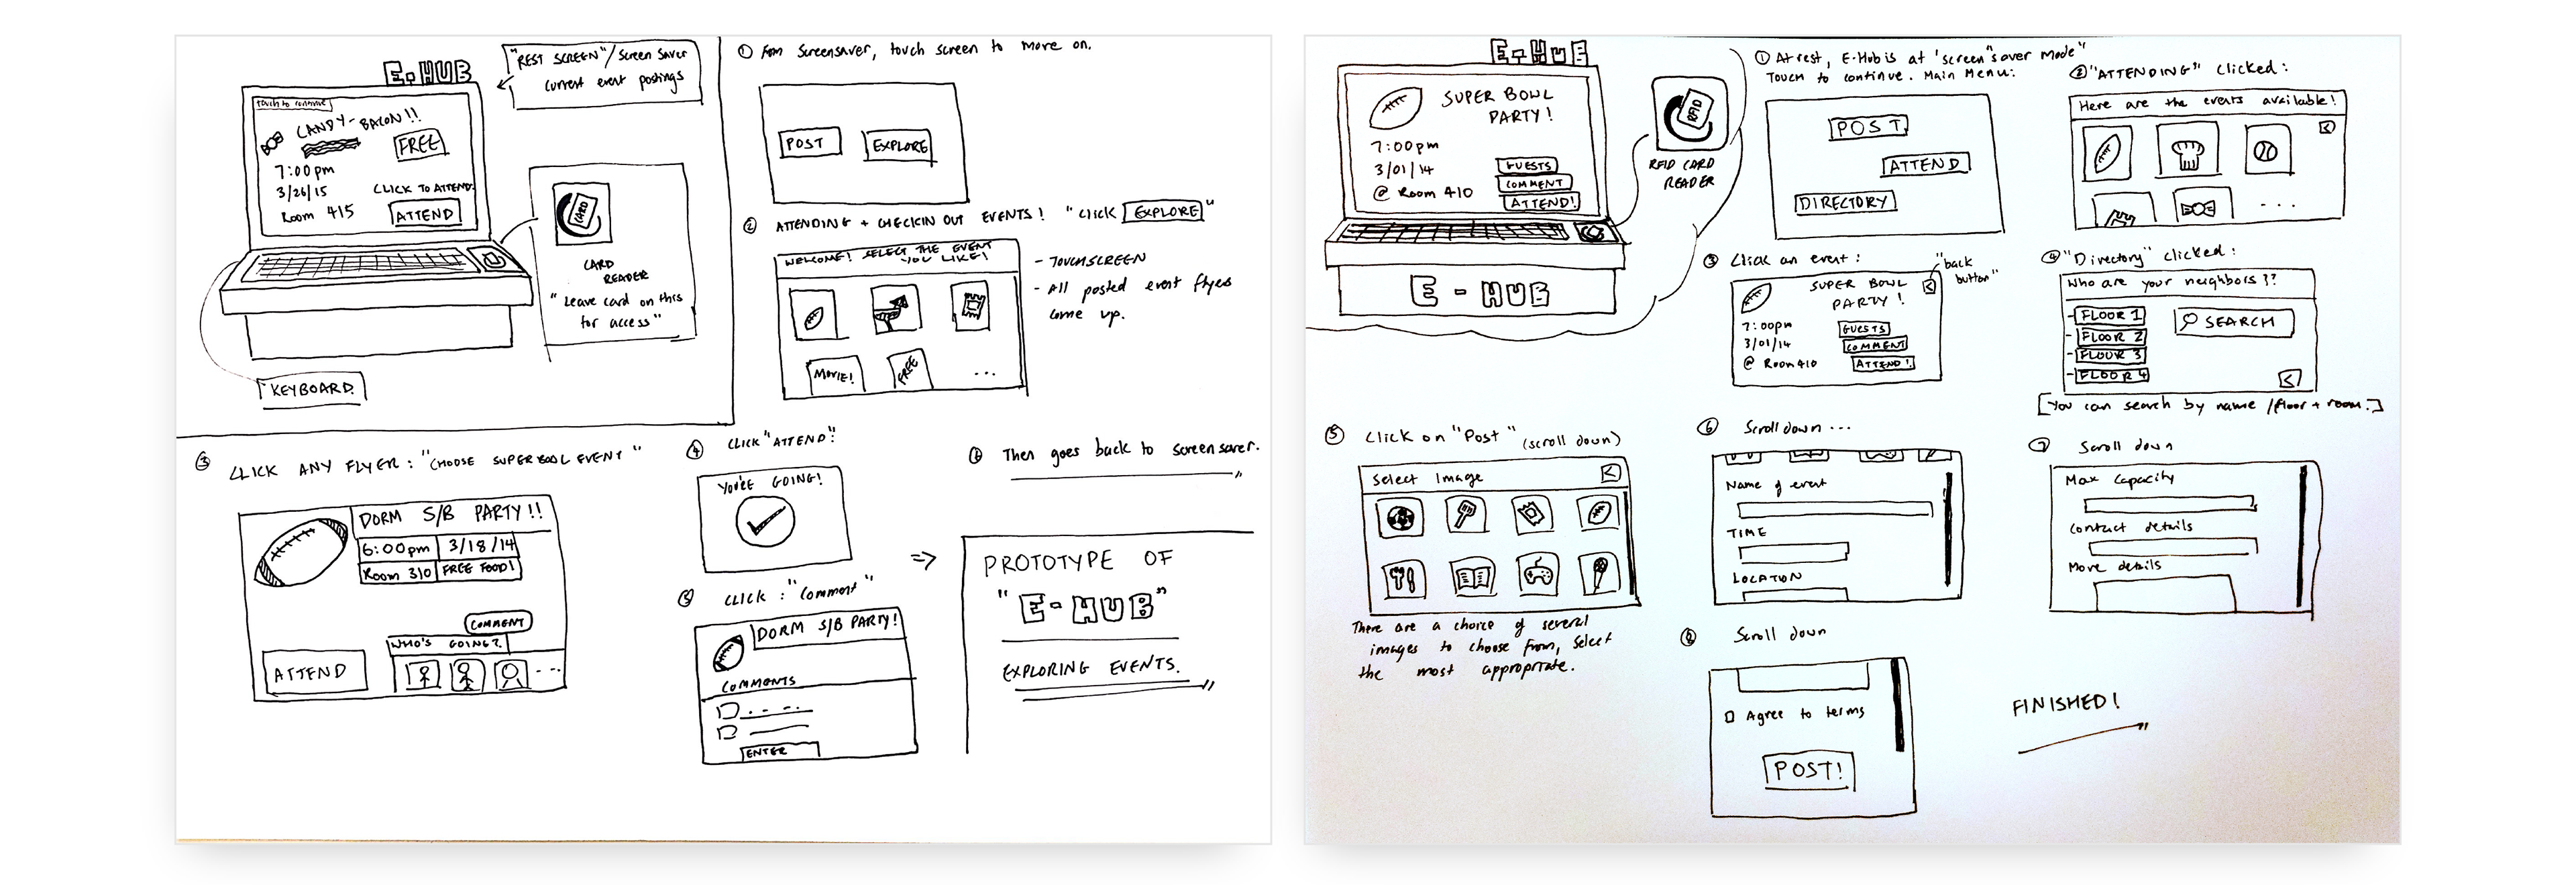 E-HUB
"REST SCREEN"/Screen Saver
current event postings
touch to continue
CANDY-BACON!!
FREE
7:00pm
3/26/15
Room 415
CLICK TO ATTEND:
ATTEND
CARD
CARD
READER
"Leave card on this
for access"
KEYBOARD.
① From Screensaver, touch screen to move on.
POST
EXPLORE
② ATTENDING + CHECKIN OUT EVENTS! "click EXPLORE"
WELCOME! SELECT THE EVENT
YOU LIKE!
MOVIE!
FREE
...
- TOUCHSCREEN
- All posted event flyers
come up.
③ CLICK ANY FLYER: "CHOOSE SUPERBOWL EVENT"
DORM S/B PARTY!!
6:00pm
3/18/14
Room 310
FREE FOOD!
COMMENT
WHO'S GOING?
ATTEND
...
④ CLICK "ATTEND":
YOU'RE GOING!
⑤ CLICK: "Comment"
DORM S/B PARTY!
COMMENTS
ENTER
⑥ Then goes back to screensaver.
=> PROTOTYPE OF
"E-HUB"
EXPLORING EVENTS.
E-HUB
SUPER BOWL
PARTY!
7:00pm
3/01/14
@ Room 410
GUESTS
COMMENT
ATTEND!
E-HUB
RFID
RFID CARD
READER
① At rest, E-Hub is at 'screen"saver mode"
Touch to continue. Main Menu:
POST
ATTEND
DIRECTORY
② "ATTENDING" clicked:
Here are the events available!
<
...
③ Click an event:
"back
button"
SUPER BOWL
PARTY!
<
7:00pm
3/01/14
@ Room 410
GUESTS
COMMENT
ATTEND!
④ "Directory" clicked:
Who are your neighbors??
- FLOOR 1
- FLOOR 2
- FLOOR 3
- FLOOR 4
SEARCH
<
[You can search by name/floor + room.]
⑤ Click on "Post" (scroll down)
Select Image
<
There are a choice of several
images to choose from, select
the most appropriate.
⑥ Scroll down ...
Name of event
TIME
LOCATION
⑦ Scroll down
Max Capacity
Contact details
More details
⑧ Scroll down
Agree to terms
POST!
FINISHED!